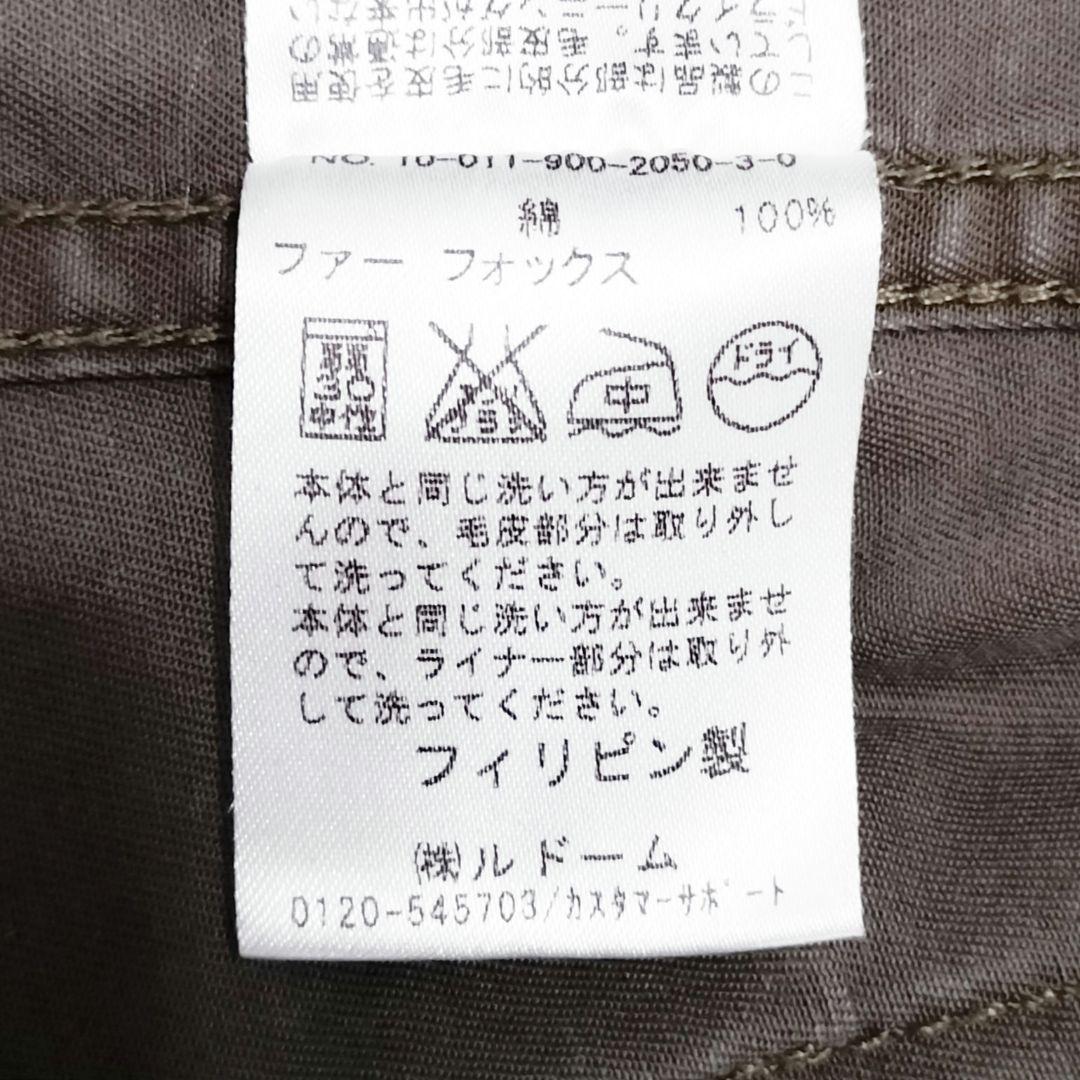 この製品は部分的に毛皮を使用
しています。毛皮部分は通常の
ドライクリーニングが出来ない
NO. 10-011-900-2050-3-0
綿 100%
ファー フォックス
弱 30 中性
エンソサラシ
中
ドライ
本体と同じ洗い方が出来ませ
んので、毛皮部分は取り外し
て洗ってください。
本体と同じ洗い方が出来ませ
ので、ライナー部分は取り外
して洗ってください。
フィリピン製
(株)ルドーム
0120-545703/カスタマーサポート